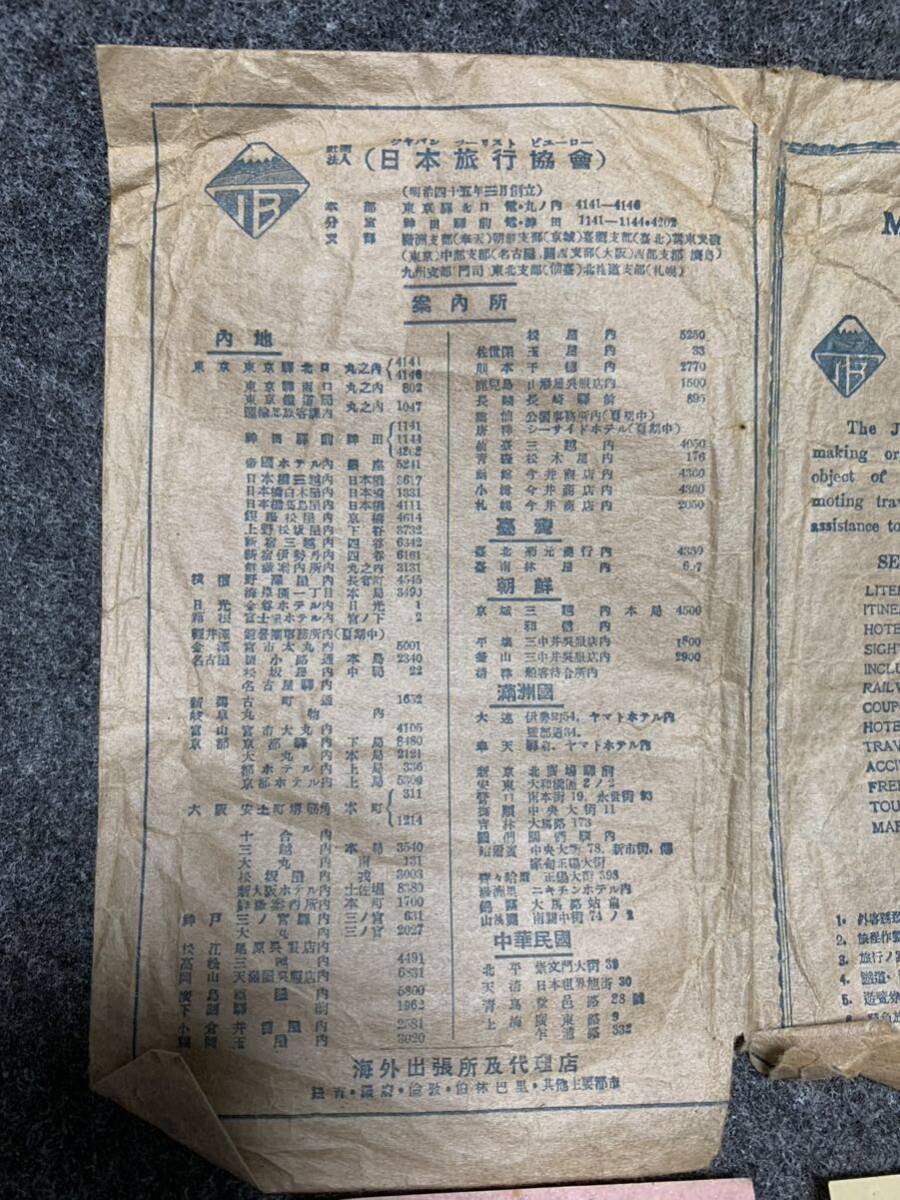 ジャパン ツーリスト ビューロー
社團法人 (日本旅行協會)
JTB
(明治四十五年三月創立)
本部 東京驛北口 電・丸ノ內 4141—4146
分室 神田驛前 電・神田 1141—1144・4202
支部 滿洲支部(奉天)朝鮮支部(京城)臺灣支部(臺北)關東支部
(東京)中部支部(名古屋)關西支部(大阪)西部支部(廣島)
九州支部(門司)東北支部(仙臺)北海道支部(札幌)
案內所
內地
東京 東京驛北口 丸之內 4141 4146
東京驛南口 丸之內 802
東京鐵道局
運輸部旅客課內 丸之內 1047
神田驛前 神田 1141 1144 4202
帝國ホテル內 銀座 5241
日本橋三越內 日本橋 3617
日本橋白木屋內 日本橋 1331
日本橋高島屋內 日本橋 4111
銀座松屋內 京橋 4614
上野松坂屋內 下谷 3732
新宿三越內 四谷 6342
新宿伊勢丹內 四谷 6161
丸之內 3131
橫濱 野澤屋內 長者町 4545
海岸通一丁目 本局 3490
日光 金谷ホテル內 日光 1
箱根 富士屋ホテル內 宮ノ下 2
輕井澤 (夏期中)
金澤 宮市大丸內 5001
名古屋 廣小路通 本局 2340
松坂屋內 中局 22
名古屋驛內
新潟 古町通 1652
岐阜 丸物內
富山 宮市大丸內 4105
京都 京都驛內 下局 8480
大丸內 本局 2121
都ホテル內 上局 336
京都ホテル內 上局 5300
大阪 安土町堺筋角 本町 311 1214
十合內
三越內 本局 3540
大丸內 南 131
松坂屋內 戎 3003
新大阪ホテル內 土佐堀 8380
鮮滿案內所內 本町 1700
神戶 三ノ宮驛內 三ノ宮 631
大丸內 三ノ宮 2027
尾原吳服店內
高松 三越內 4491
岡山 天滿屋吳服店內 6831
廣島 5800
下關 驛前 1962
小倉 井筒屋內 2581
福岡 玉屋內 3020
松屋內 5250
佐世保 玉屋內 33
熊本 千德內 2770
鹿兒島 山形屋吳服店內 1500
長崎 長崎驛前 895
雲仙 公園事務所內(夏期中)
唐津 シーサイドホテル(夏期中)
仙臺 三越內 4050
靑森 松木屋內 176
函館 今井商店內 4300
小樽 今井商店內 4300
札幌 今井商店內 2050
臺灣
臺北 菊元商行內 4350
臺南 林屋內
朝鮮
京城 三越內 本局 4500
和信內
平壤 三中井吳服店內 1800
釜山 三中井吳服店內 2900
淸津 船客待合所內
滿洲國
大連 伊勢町54、ヤマトホテル內
聖部通34、
奉天 驛前、ヤマトホテル內
新京 北廣場驛前
安東 大和橋通 2ノ2
營口 南本街 19、永世街
撫順 中央大街 11
吉林 大馬路 173
圖們 圖們驛內
哈爾濱 中央大街 78、新市街、傅
家甸正陽大街
齊々哈爾 正陽大街 398
滿洲里 ニキチンホテル內
錦縣 大馬路站前
山海關 南關中街 74ノ2
中華民國
北平 崇文門大街 39
天津 日本租界旭街 30
靑島 堂邑路 28號
上海 廣東路 9
332
海外出張所及代理店
紐育・羅府・倫敦・伯林巴里・其他主要都市
M
JTB
The J
making or
object of
moting trav
assistance to
SE
LITE
ITINE
HOTE
SIGHT
INCLU
RAILW
COUPO
HOTE
TRAV
ACCI
FREI
TOU
MAR
1. 外客誘致
2. 旅程作製
3. 旅行ノ
4. 鐵道、
5. 遊覽
6.